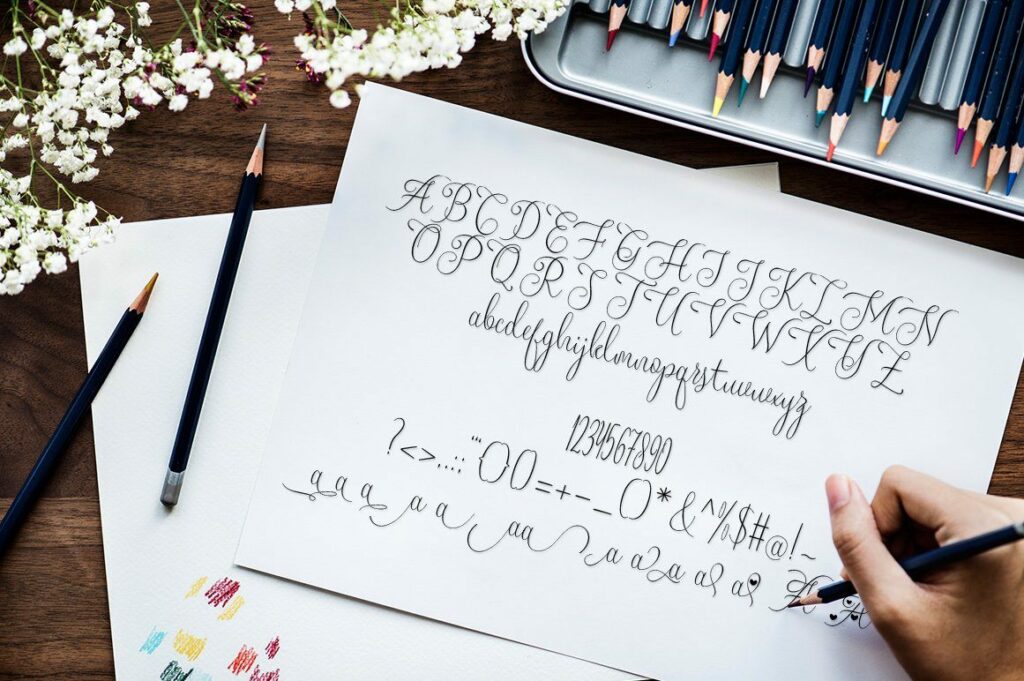 A B C D E F G H I J K L M N
O P Q R S T U V W X Y Z
abcdefghijklmnopqrstuvwxyz
1234567890
?<>,.:;'"{}()=+-_[]*&^%$#@!~
a a a a a aa a a a a a A A